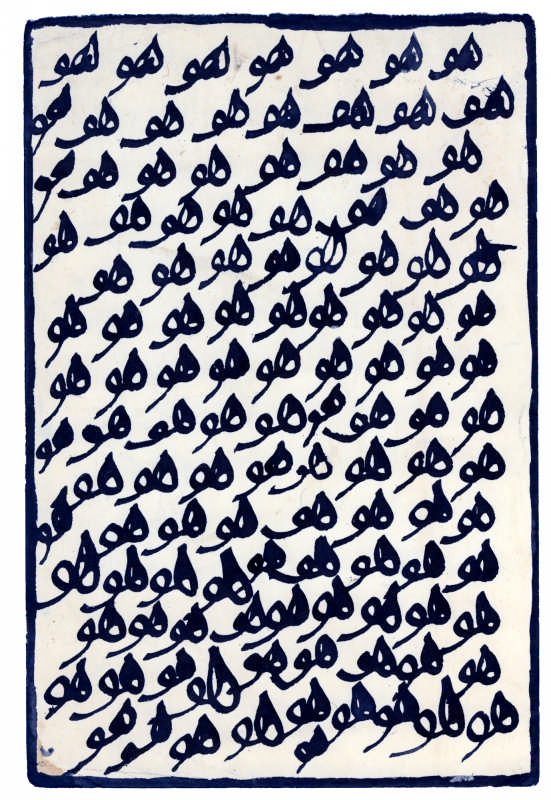 هو هو هو هو هو هو هو
هو هو هو هو هو هو هو هو
هو هو هو هو هو هو هو هو
هو هو هو هو هو هو هو هو
هو هو هو هو هو هو هو هو
هو هو هو هو هو هو هو هو هو
هو هو هو هو هو هو هو هو هو
هو هو هو هو هو هو هو هو هو
هو هو هو هو هو هو هو هو
هو هو هو هو هو هو هو هو
هو هو هو هو هو هو هو هو هو
هو هو هو هو هو هو هو هو هو
هو هو هو هو هو هو هو هو هو
هو هو هو هو هو هو هو هو هو هو